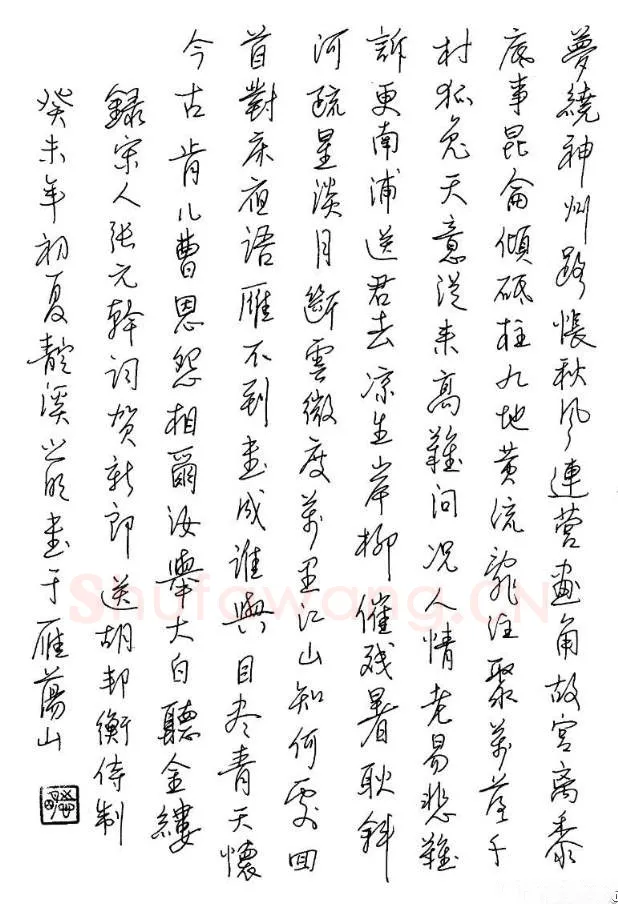 夢繞神州路悵秋風連營畫角故宮离黍
底事昆侖傾砥柱九地黄流亂注聚萬落千
村狐兔天意從來高難问况人情老易悲難
訴更南浦送君去凉生岸柳催残暑耿斜
河疏星淡月斷雲微度萬里江山知何處回
首對床夜語雁不到書成誰與目盡青天懷
今古肯儿曹恩怨相爾汝舉大白聽金縷
録宋人张元幹词贺新郎送胡邦衡侍制
癸未年初夏龍溪書于雁蕩山
Shufawang.CN